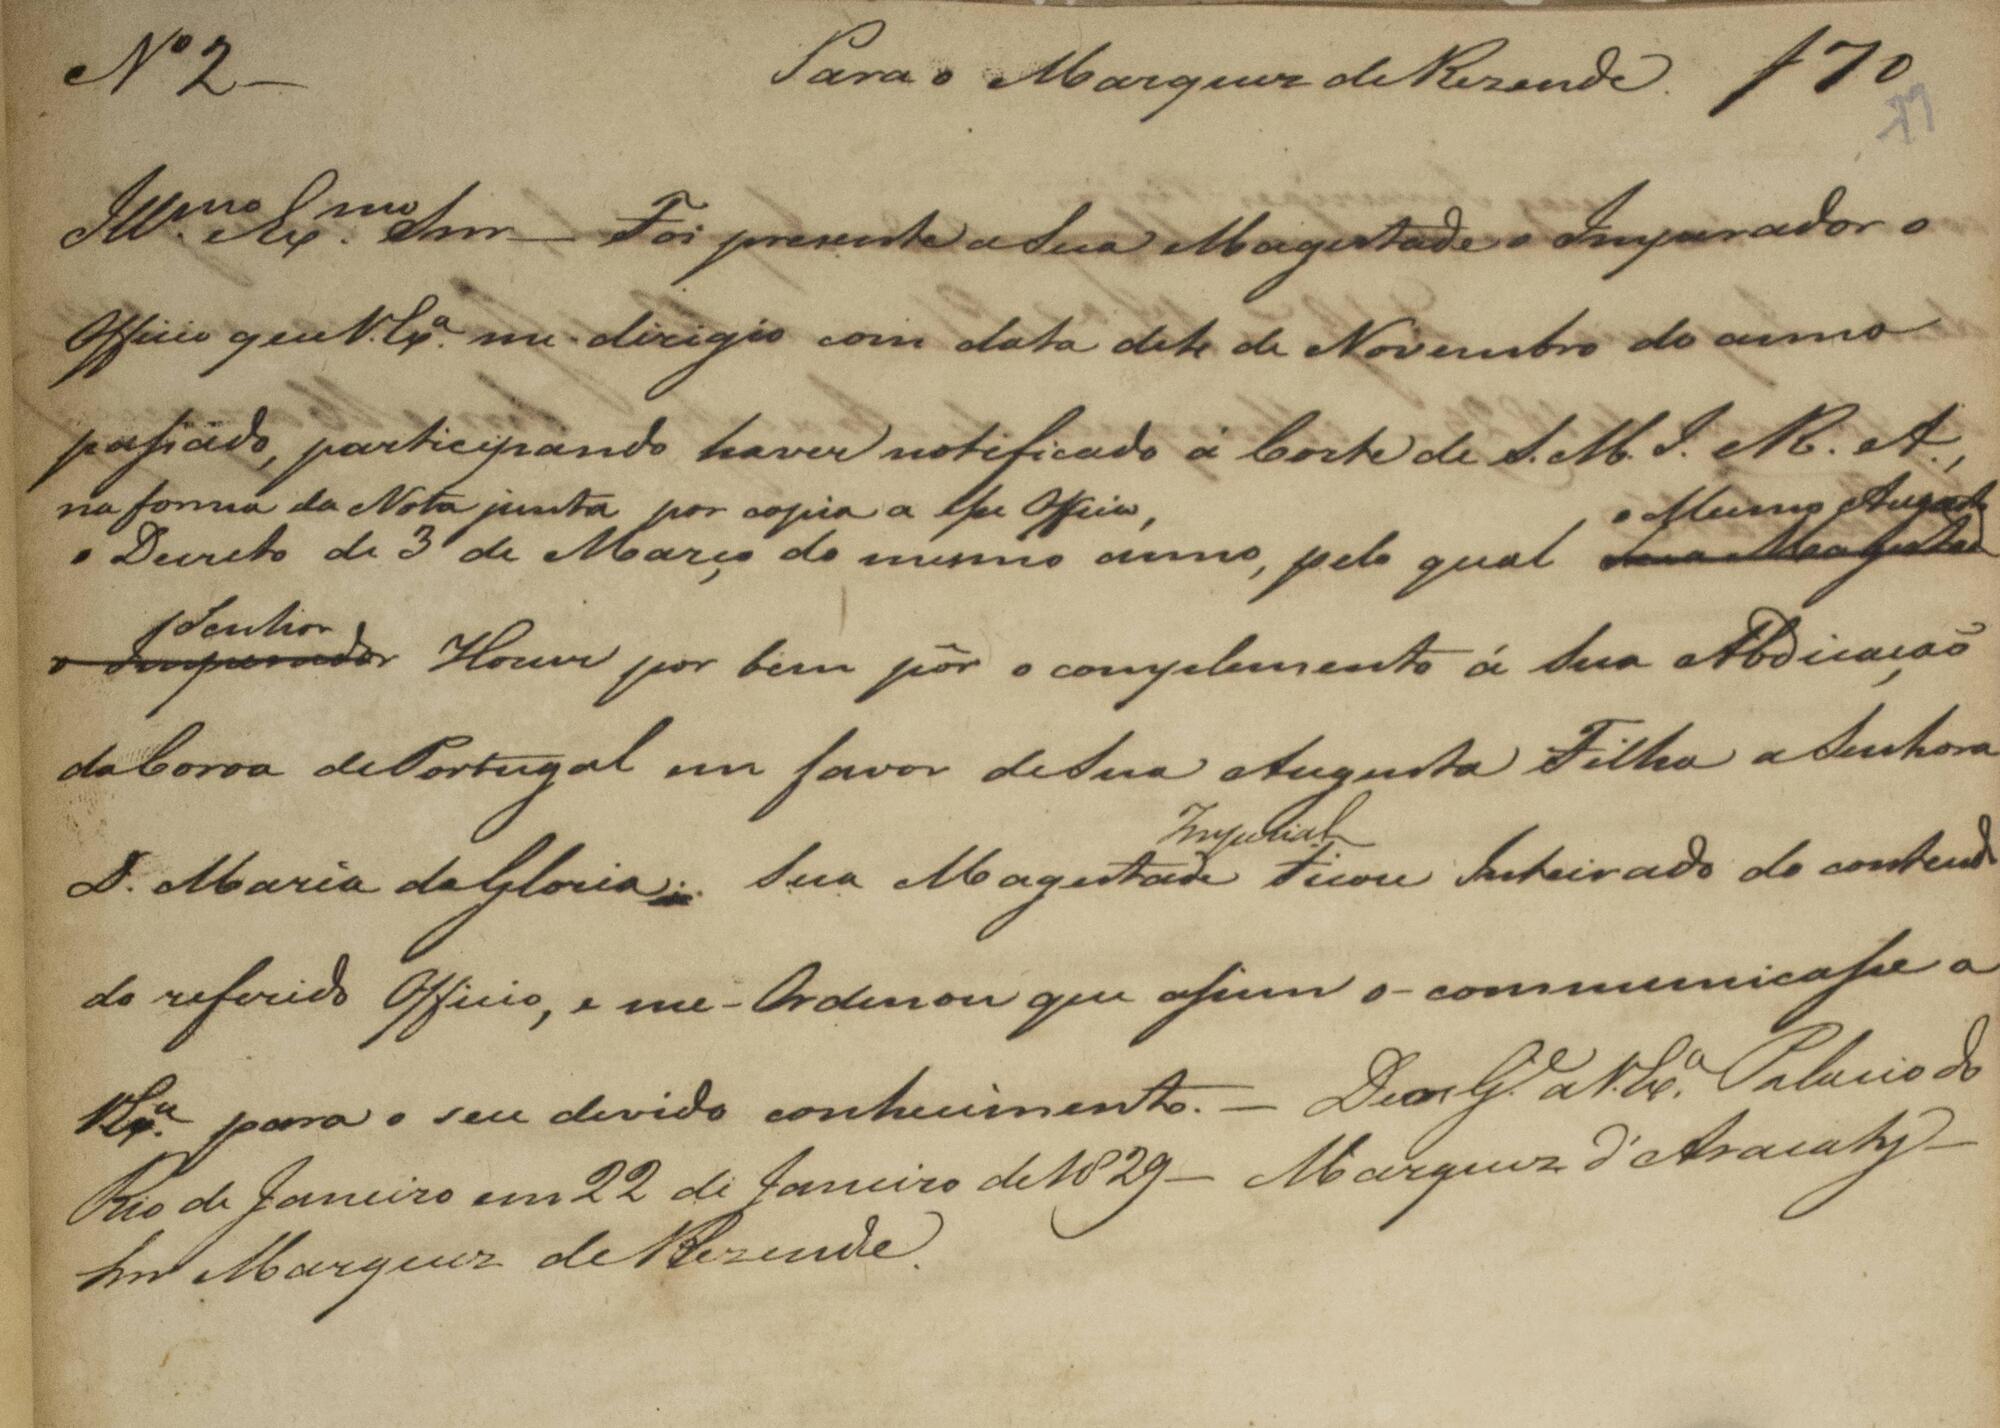 Nº 2 — Para o Marquez de Rezende. f 70
79
Ill.mo Ex.mo Snr — Foi presente a Sua Magestade o Imperador o
Officio que V. Ex.ª me dirigio com data de 4 de Novembro do anno
passado, participando haver notificado á Corte de S. M. I. R. A.,
na forma da Nota junta por copia a esse Officio, o Mesmo Augusto
o Decreto de 3 de Março do mesmo anno, pelo qual Sua Magestade
Senhor
o Imperador Houve por bem pôr o complemento á Sua Abdicação
da Coroa de Portugal em favor de Sua Augusta Filha a Senhora
Imperial
D. Maria da Gloria: Sua Magestade Ficou Inteirado do contendo
do referido Officio, e me-Ordenou que assim o-communicasse a
V. Ex.ª para o seu devido conhecimento. — Deos G.e a V. Ex.ª Palacio do
Rio de Janeiro em 22 de Janeiro de 1829 — Marquez d'Aracaty —
Snr Marquez de Rezende.